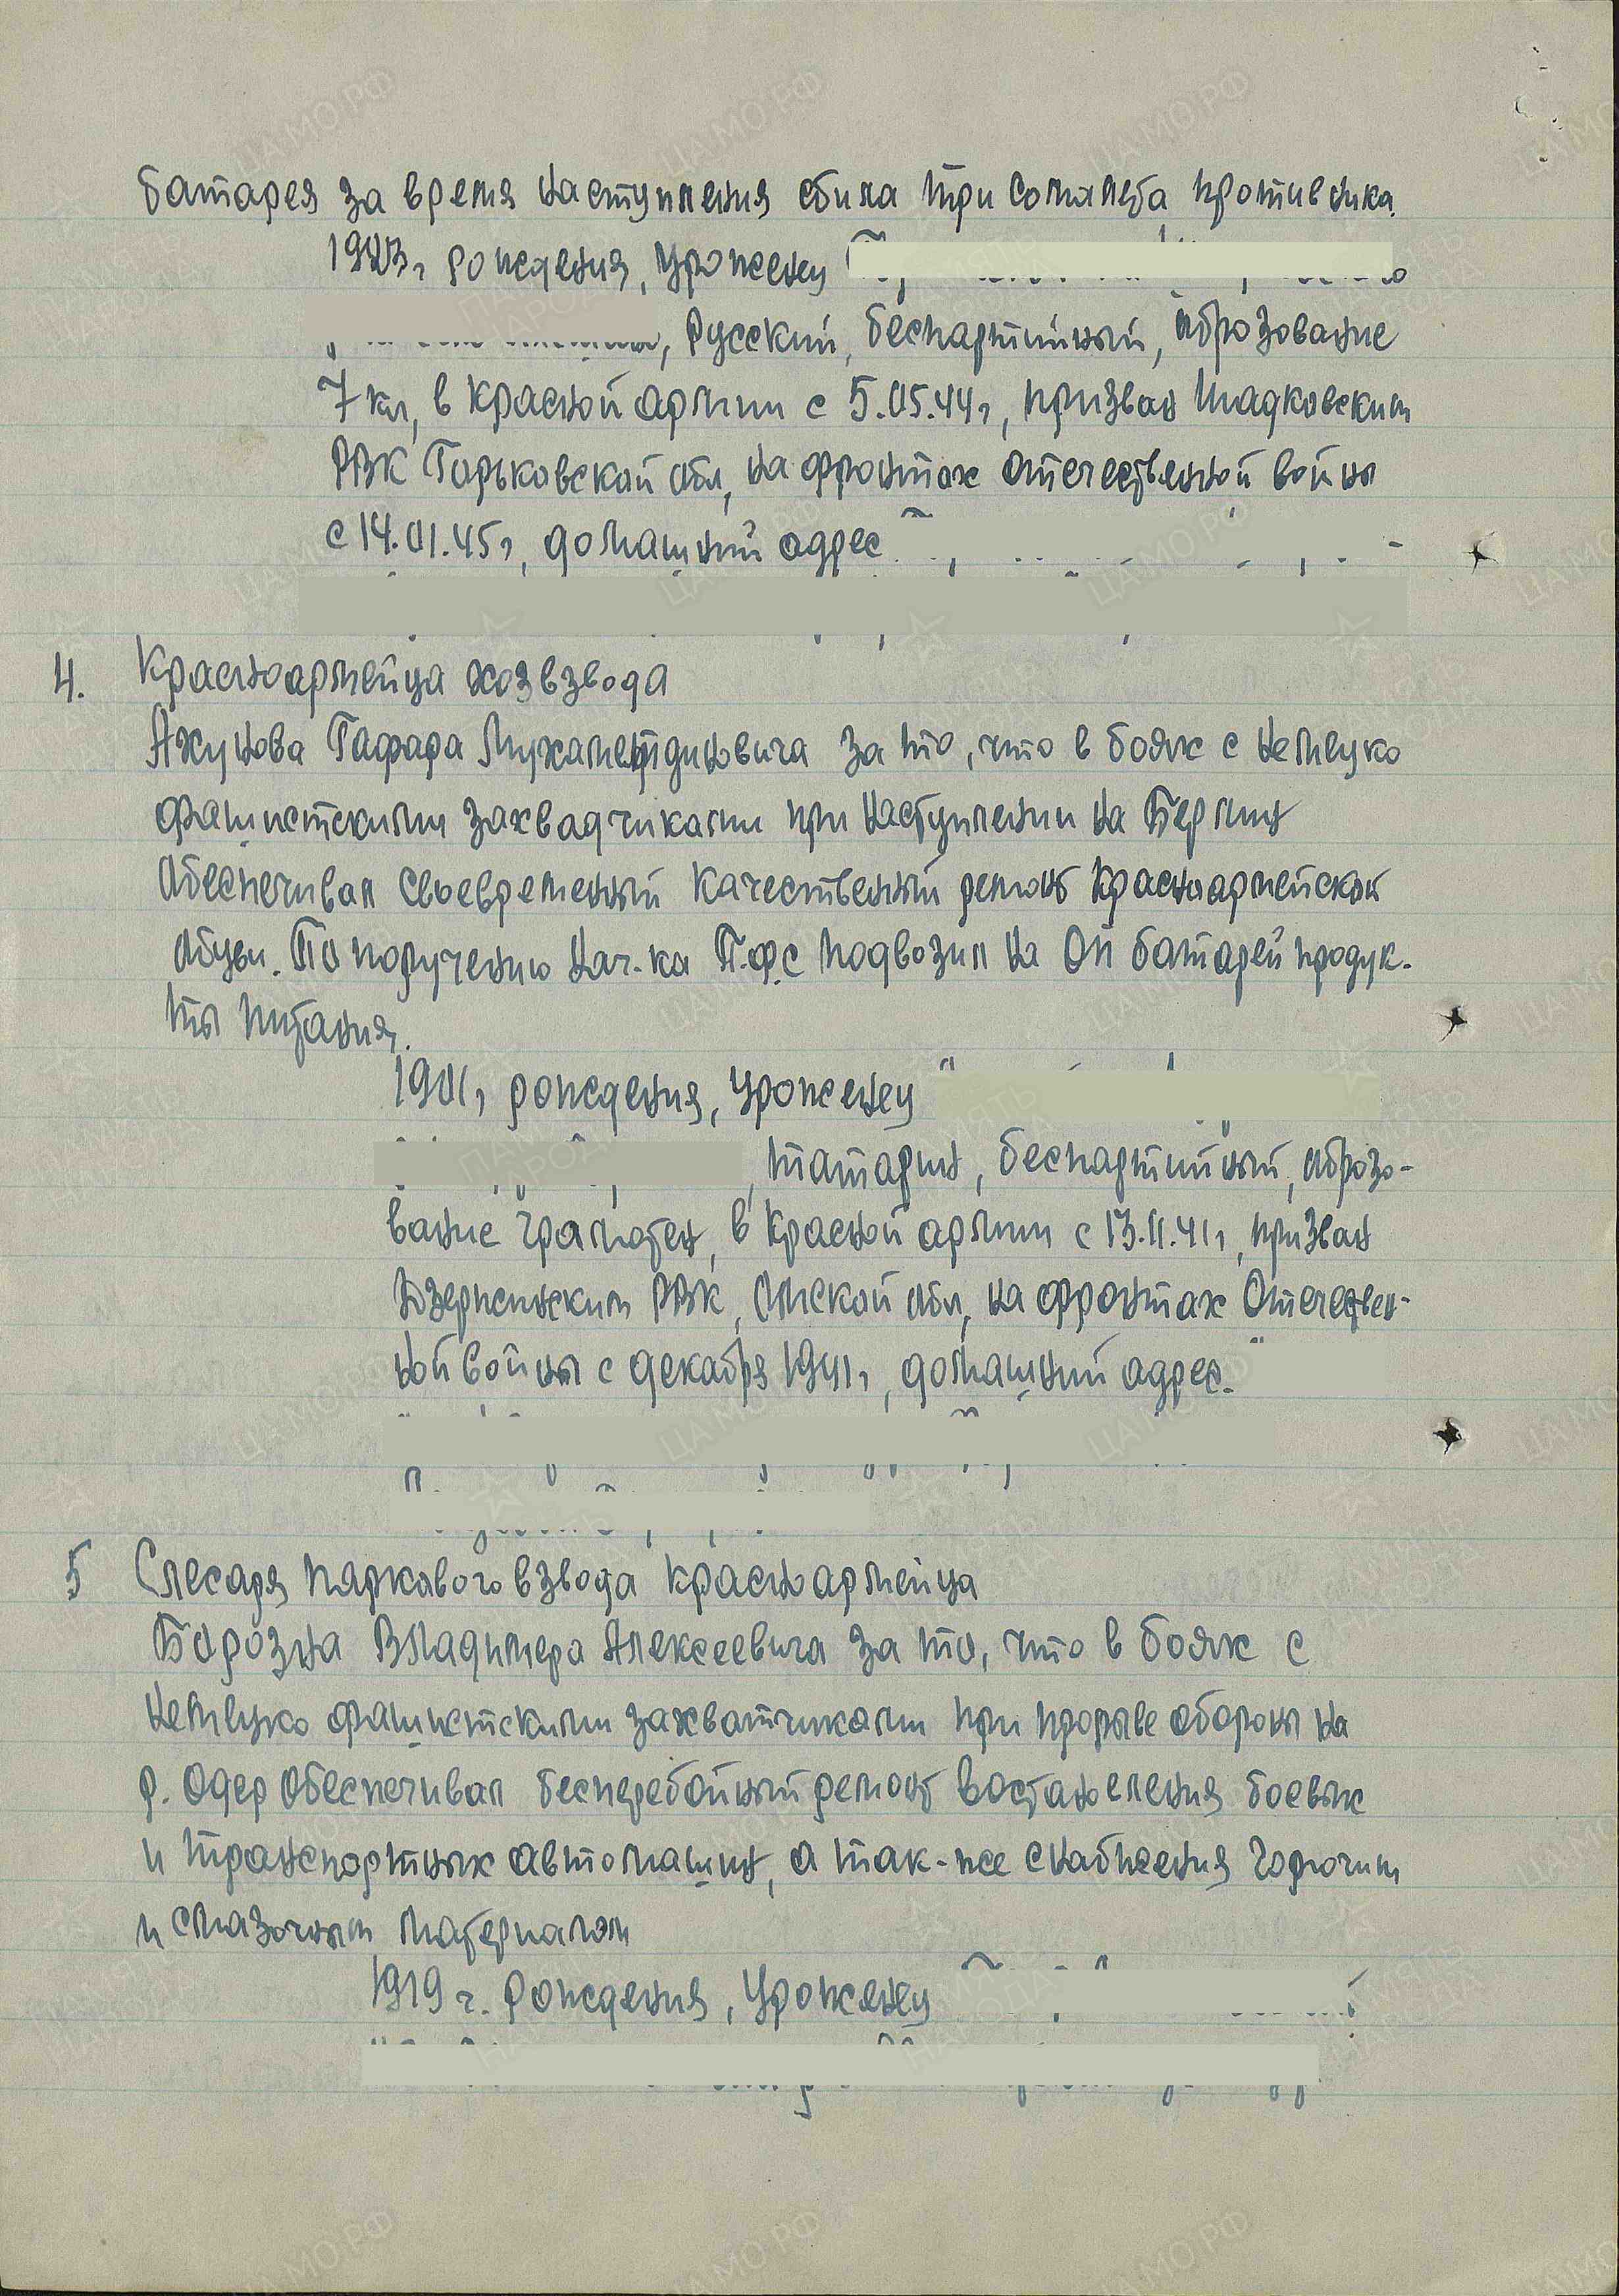 батарея за время наступления сбила три самалета противника.
1923г рождения, урожениц
, Русский, беспартийный, образование
7 кл, в красной армии с 5.05.44г, призван Шадковским
РВК Горьковской обл, на фронтах отечественной войны
с 14.01.45г, домашний адрес
4. Красноармейца хозвзвода
Ахунова Гафара Мухамедтдиновича за то, что в боях с немецко
фашистскими захвадчиками при наступлении на Берлин
обеспечивал своевременный качественный ремонт красноармейской
обуви. По поручению нач-ка П.ф.с подвозил на ОП батарей продук-
ты питания.
1901г рождения, урожениц
, татарин, беспартийный, образо-
вание грамотен, в красной армии с 13.11.41г, призван
РВК, Омской обл, на фронтах Отечествен-
ной войны с декабря 1941г, домашний адрес.
5 Слесаря паркового взвода красноармейца
Борозна Владимера Алексеевича за то, что в боях с
немецко фашистскими захватчиками при прорыве обороны на
р. Одер обеспечивал бесперебойный ремонт востановления боевых
и транспортных автомашин, а так-же снабжения горючим
и смазочным материалом
1919 г. рождения, урожениц
ЦАМО.РФ
ПАМЯТЬ НАРОДА